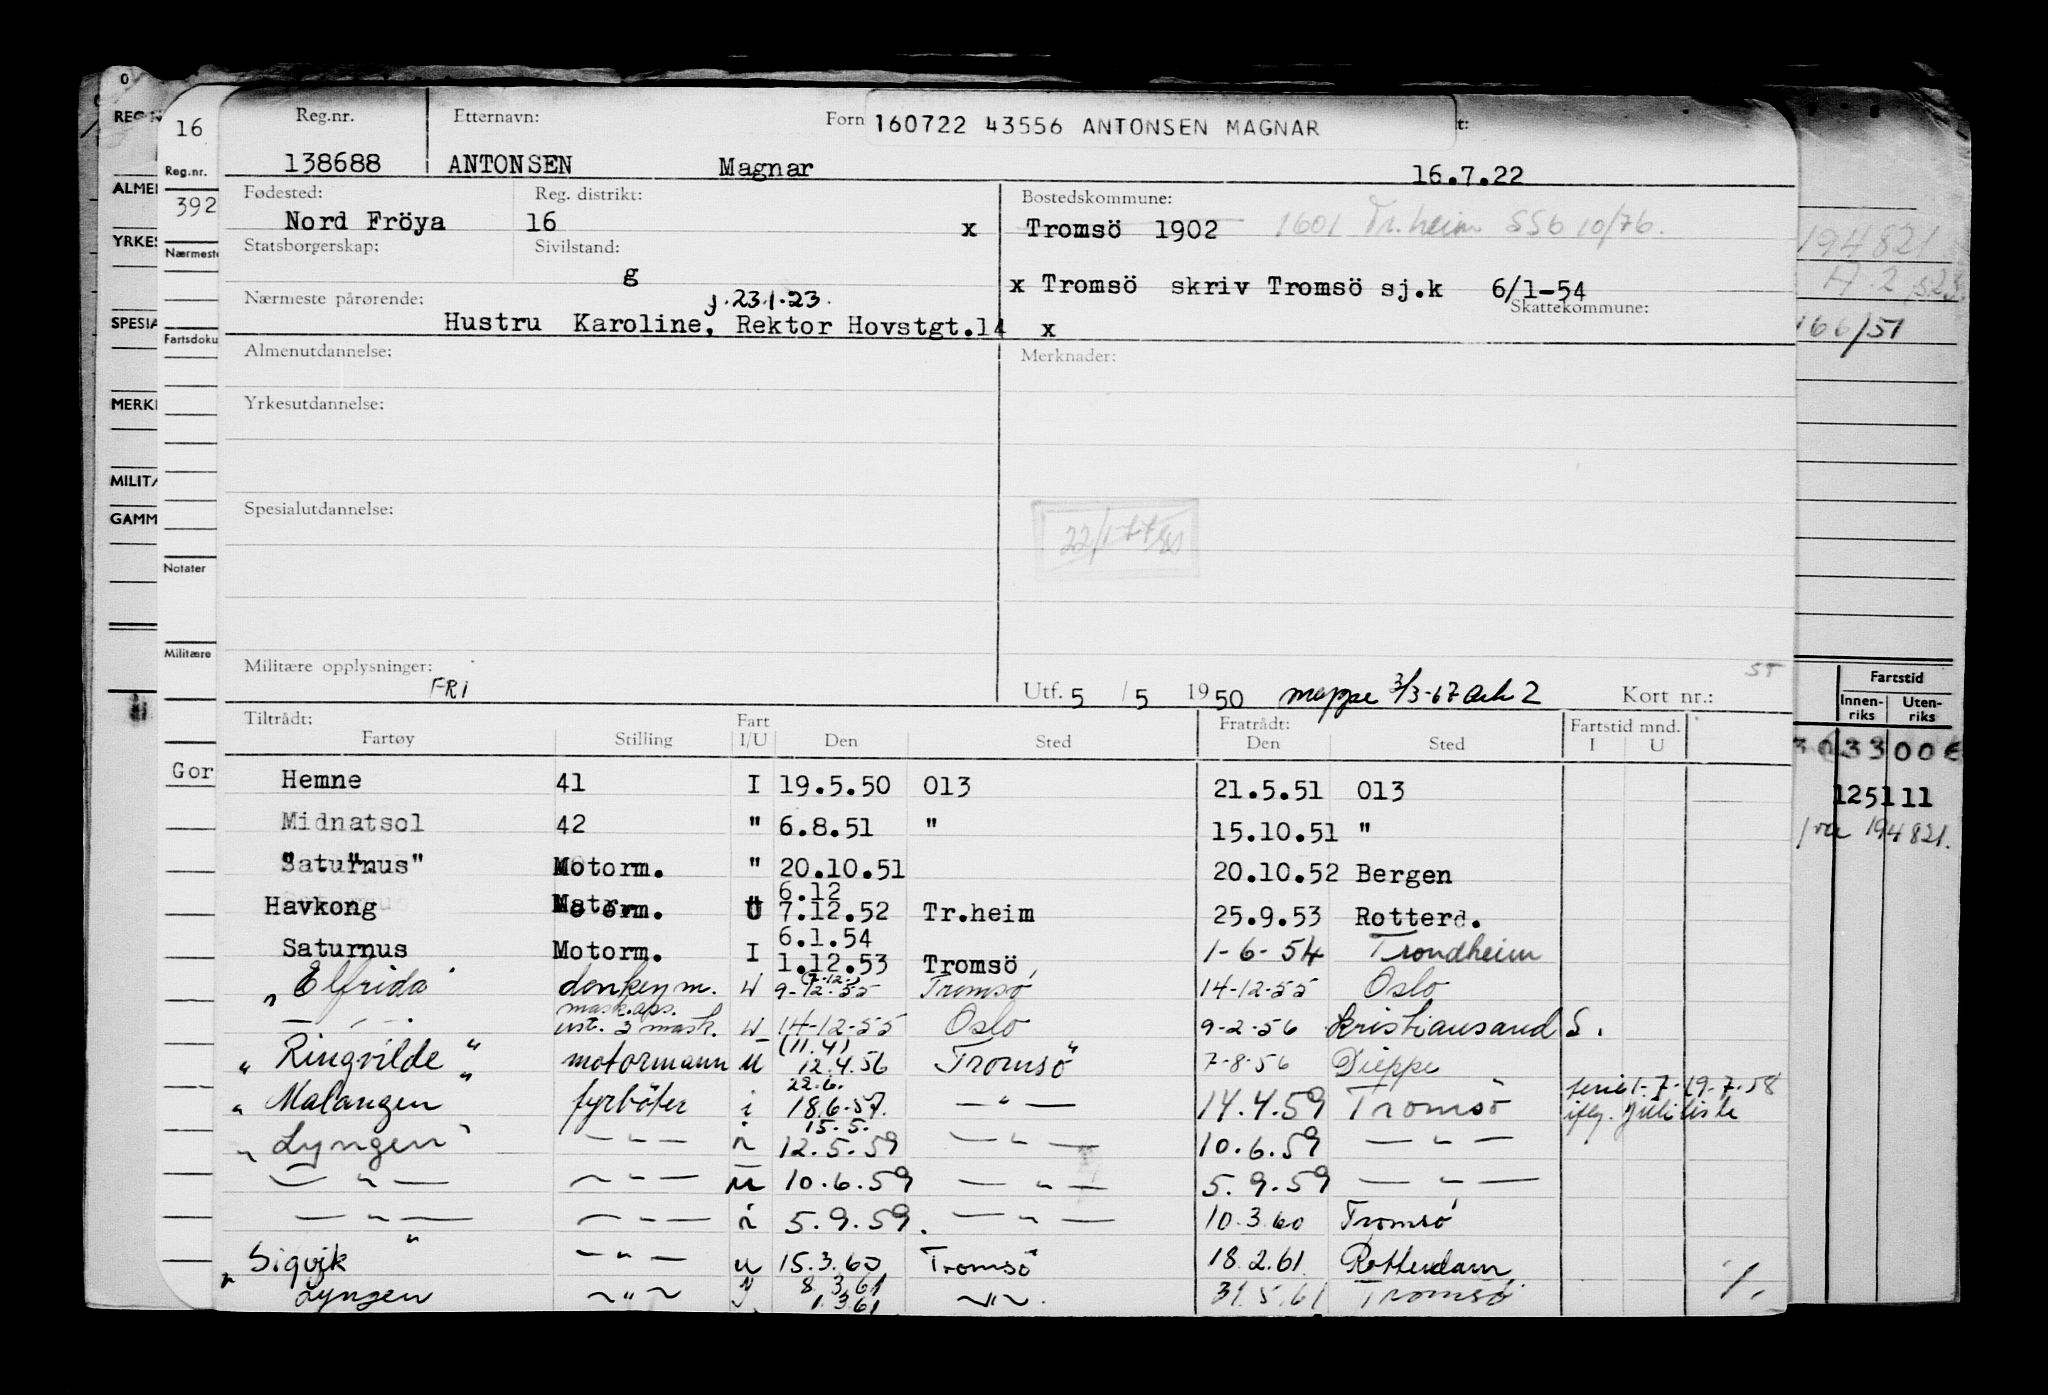 Reg.nr. Etternavn: Forn 160722 43556 ANTONSEN MAGNAR t:
138688 ANTONSEN Magnar 16.7.22
Fødested: Reg. distrikt: Bostedskommune:
Nord Fröya 16 x Tromsö 1902 1601 Tr.heim SSb 10/76.
Statsborgerskap: Sivilstand:
g x Tromsö skriv Tromsö sj.k 6/1-54
Nærmeste pårørende: f. 23.1.23. Skattekommune:
Hustru Karoline, Rektor Hovstgt.14 x
Almenutdannelse: Merknader:
Yrkesutdannelse:
Spesialutdannelse:
Militære opplysninger: FRI
Utf. 5 / 5 1950 mappe 3/3-67 Ark 2 Kort nr.:
Tiltrådt: Fart Fratrådt: Fartstid mnd.
Fartøy Stilling I/U Den Sted Den Sted I U
Hemne 41 I 19.5.50 013 21.5.51 013
Midnatsol 42 " 6.8.51 " 15.10.51 "
"Saturnus" Motorm. " 20.10.51 20.10.52 Bergen
6.12
Havkong Motorm. U 7.12.52 Tr.heim 25.9.53 Rotterd.
6.1.54
Saturnus Motorm. I 1.12.53 Tromsö 1-6-54 Trondheim
(7-12-)
"Elfrida" donkeym. U 9-12-55 Tromsö 14-12-55 Oslo
mask.aps.
— " — ust. 3 mask. U 14-12-55 Oslo 9-2-56 Kristiansand S.
(11.4)
"Ringvilde" motormann U 12.4.56 Tromsö 7-8-56 Dieppe
22.6.
"Malangen" fyrböter i 18.6-57. — " — 14.4.59 Tromsö ferie 1-7-19-7-58
iflg. juliliste
15.5.
"Lyngen" — " — i 12.5.59 — " — 10.6.59 — " —
— " — — " — u 10.6.59 — " — 5.9.59 — " —
— " — — " — i 5.9.59. — " — 10.3.60 Tromsö
"Sigvik" — " — u 15.3.60 Tromsö 18.2.61. Rotterdam
8.3.61
Lyngen — " — 1.3.61 — " — 31.5.61 Tromsö
16
Reg.nr.
392
Nærmeste
Fartsdoku
Notater
Militære
Gor
REG N
ALME
YRKES
SPESIA
MERK
MILIT
GAMM
194821
A 2
166/51
Fartstid
Innen-riks Uten-riks
125111
194821.